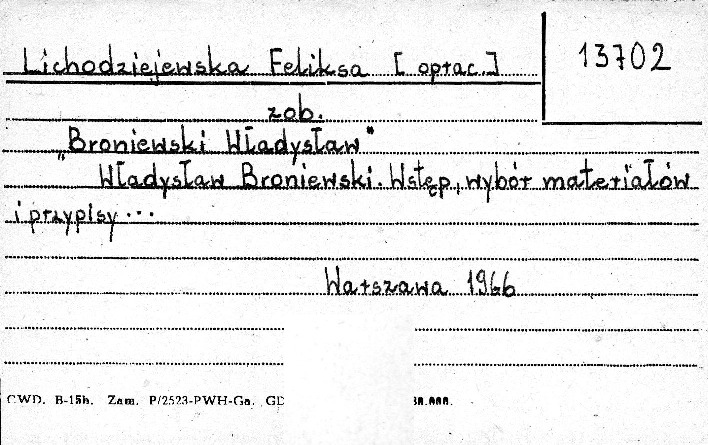 Lichodziejewska Feliksa [oprac.]
13702
zob.
"Broniewski Władysław"
Władysław Broniewski. Wstęp, wybór materiałów
i przypisy...
Warszawa 1966
CWD. B-15b. Zam. P/2523-PWH-Ga. GD